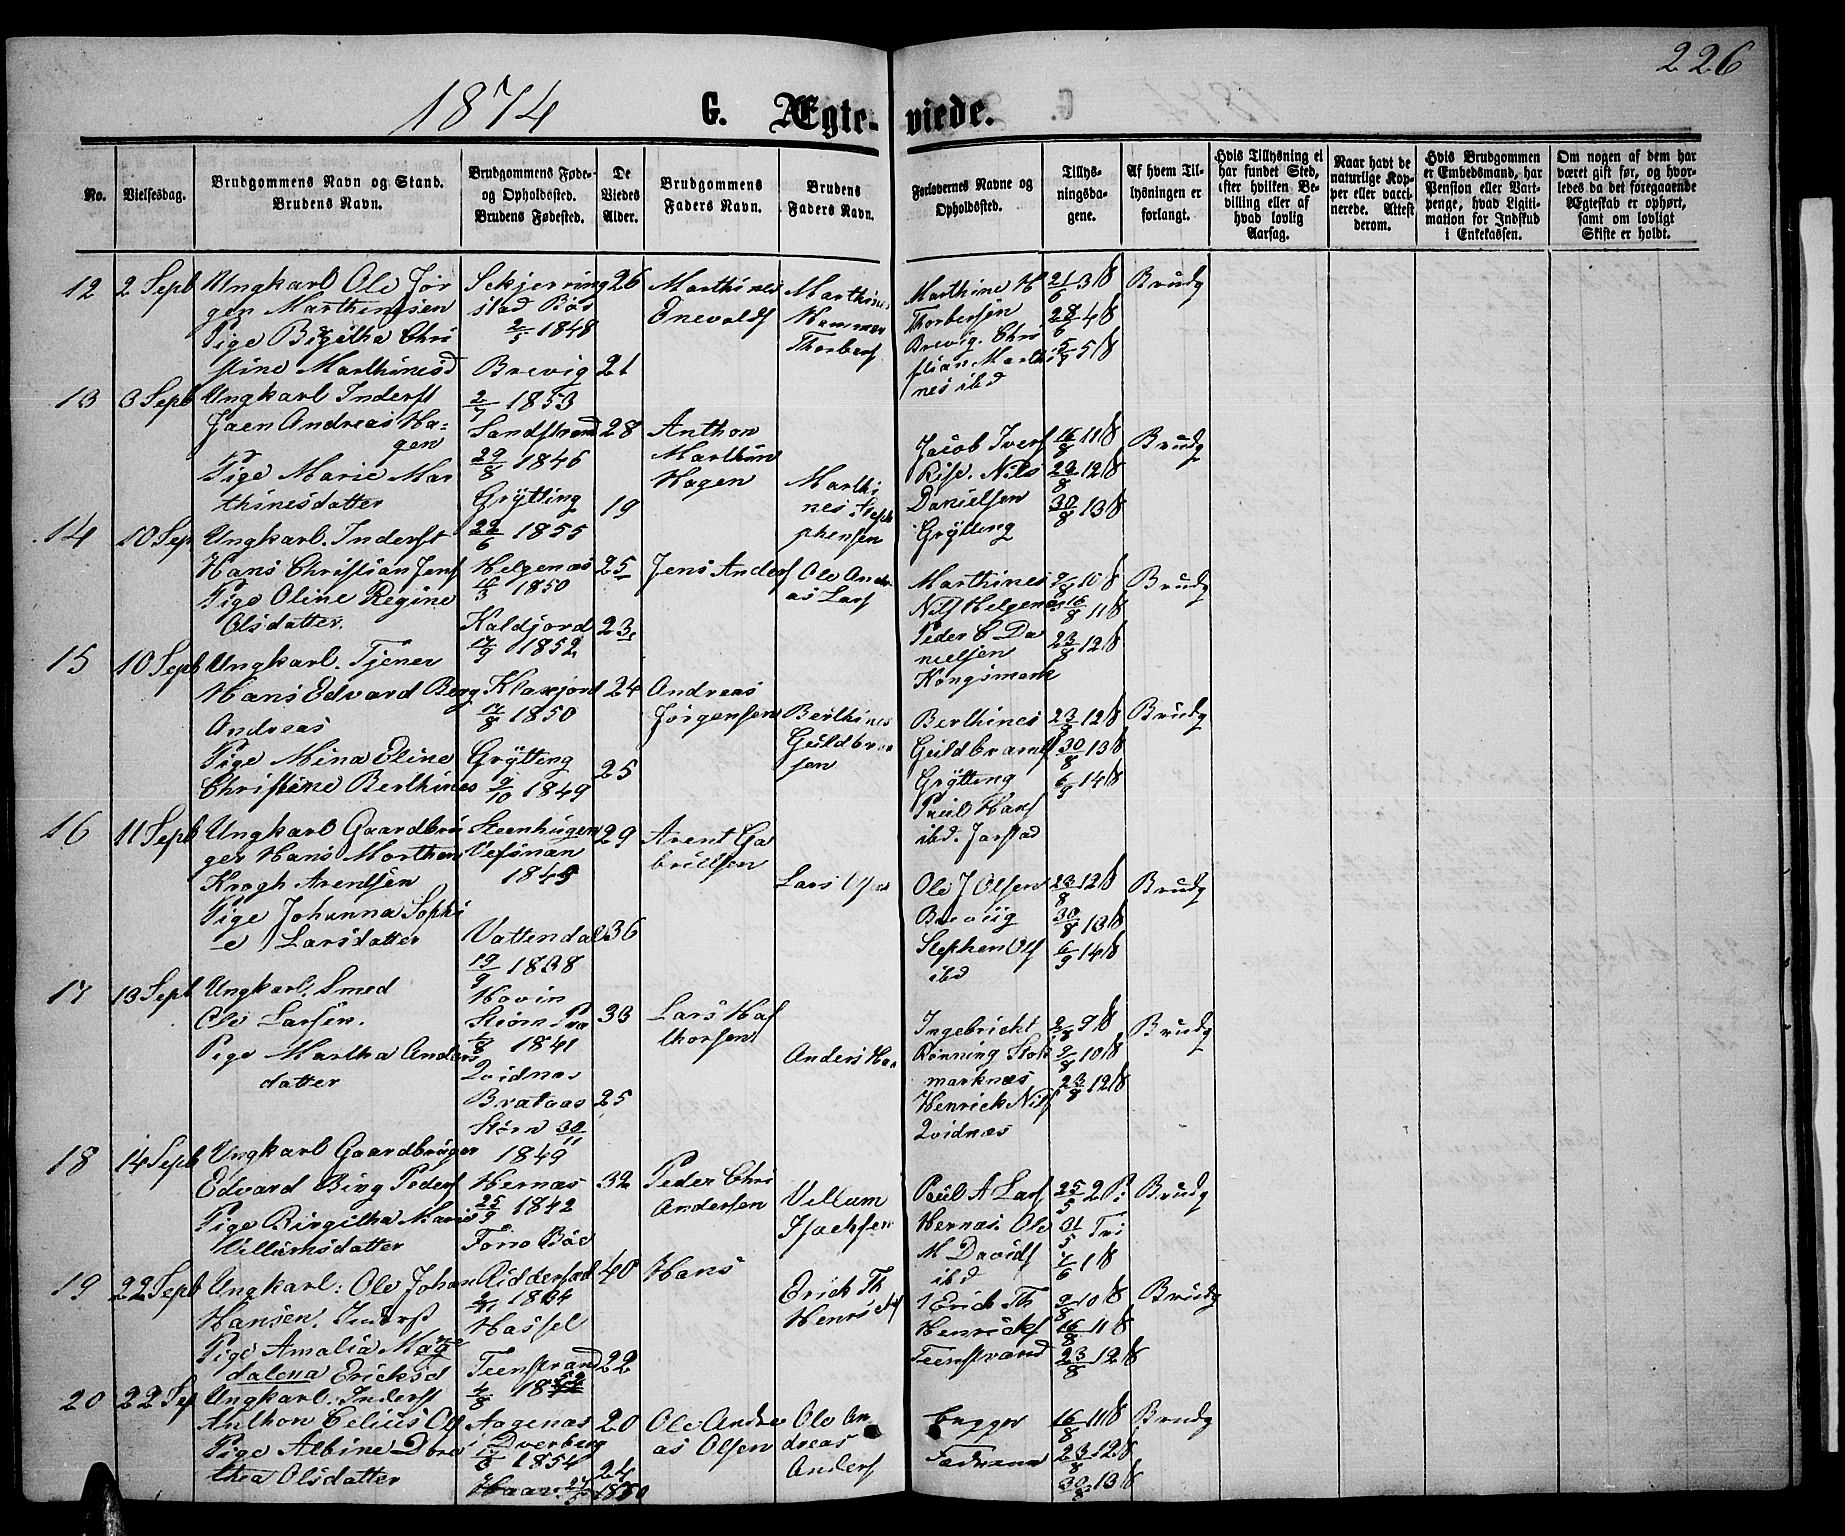 226
1874
G. Ægte-viede.
No.
Vielsesdag.
Brudgommens Navn og Stand.
Brudens Navn.
Brudgommens Føde-
og Opholdssted.
Brudens Fødested.
De
Viedes
Alder.
Brudgommens
Faders Navn.
Brudens
Faders Navn.
Forlovernes Navne og
Opholdssted.
Tillys-
ningsda-
gene.
Af hvem Til-
lysningen er
forlangt.
Hvis Tillysning ei
har fundet Sted,
efter hvilken Be-
villing eller af
hvad lovlig
Aarsag.
Naar havt de
naturlige Kop-
per eller vacci-
nerede. Attest
derom.
Hvis Brudgommen
er Embedsmand, har
Pension eller Vart-
penge, hvad Ligiti-
mation for Indskud
i Enkekassen.
Om nogen af dem har
været gift før, og hvor-
ledes da det foregaaende
Ægteskab er ophørt,
samt om lovligt
Skifte er holdt.
12 2 Sept Ungkarl Ole Jør
gen Marthinsen
Pige Birgitha Chri
stine Marthinesd
Skjerring
stad Bøs
2/5 1848
Brevig
26
21
Marthines
Enevolds
Marthines
Hammer
Thorbers
Marthine H
Thorbersen
Brevig. Chri
stian Marthi
nes ibd
21/6 3
28/6 4
5/7 5
Brudg
13 3 Sept Ungkarl Inderst
Jaen Andreas Ha=
gen
Pige Marie Mar
thinesdatter
2/7 1853
Sandstrand
29/8 1846
Grytting
28
19
Anthon
Marthin
Hagen
Marthi
nes Step
phensen
Jacob Ivers
Rise. Nils
Danielsen
Grytting
16/8 11
23/8 12
30/8 13
Brudg
14 10 Sep Ungkarl. Inderst
Hans Christian Jens
Pige Oline Regine
Olsdatter.
22/6 1855
Helgenæs
4/5 1850
Kaldjord
17/9 1852
25
23
Jens Anders
Ole Andre
as Lars
Marthines
Nils Helgenæs
Peder C Da
nielsen
Kongsmark
9/8 10
16/8 11
23/8 12
Brudg
15 10 Sept Ungkarl. Tjener
Hans Edvard Berg
Andreas
Pige Mina Eline
Christine Berthines
Klaxjord
17/8 1850
Grytting
9/10 1849
24
25
Andreas
Jørgensen
Berthines
Guldbran
sen
Berthines
Guldbrands
Grytting
Paul Hans
ibd. Jarstad
23/8 12
30/8 13
6/9 14
Brudg
16 11 Sept Ungkarl Gaardbru
ger Hans Morthen
Krogh Arentsen
Pige Johanna Sophi
e Larsdatter
Steenhugen
Vefsnan
1845
Vattendal
19/9 1838
29
36
Arent Ga
brielsen
Lars Olsen
Ole J Olsen
Breviig
Stephen Ols
ibd
23/8 12
30/8 13
6/9 14
Brudg
17 13 Sept Ungkarl. Smed
Ole Larsen.
Pige Martha Anders
datter
Hovin
1841
Qvidnæs
Brataas
Støren 30/11
1849
33
25
Lars Haf
thorsen
Anders Han
Ingebricht
Rønning Stok
marknæs
Henrick Nils
Qvidnæs
2/8 9
9/8 10
23/8 12
Brudg
18 14 Sept Ungkarl Gaardbruger
Edvard Bing Peders
Pige Birgitha Marie
Villumsdatter
Hernæs
25/9 1842
Forre Bøe
32
Peder Chri
Andersen
Villum
Isachsen
Paul A Lars
Hernæs. Ole
M Davids
ibd
25/5 2 P:
31/5 Tri
7/6 1
Brudg
19 22 Sept Ungkarl: Ole Johan
Hansen. Inderst
Pige Amalia Mag
dalena Ericksd
Riddersad
1834
Hassel
Teenstrand
4/8 1852
40
22
Hans
Erich Th
Henricks
Erich Th
Henricks
Teenstrand
9/8 10
16/8 11
23/8 12
Brudg
20 22 Sep Ungkarl: Inderst
Anthon Celius Ols
Pige Albine Doro
thea Olsdatter
Aagenæs
Dverberg
1854
1850
20
24
Ole Andre
as Olsen
Ole An
dreas
Anders
begges
Fædrene
16/8 11
23/8 12
30/8 13
Brudg